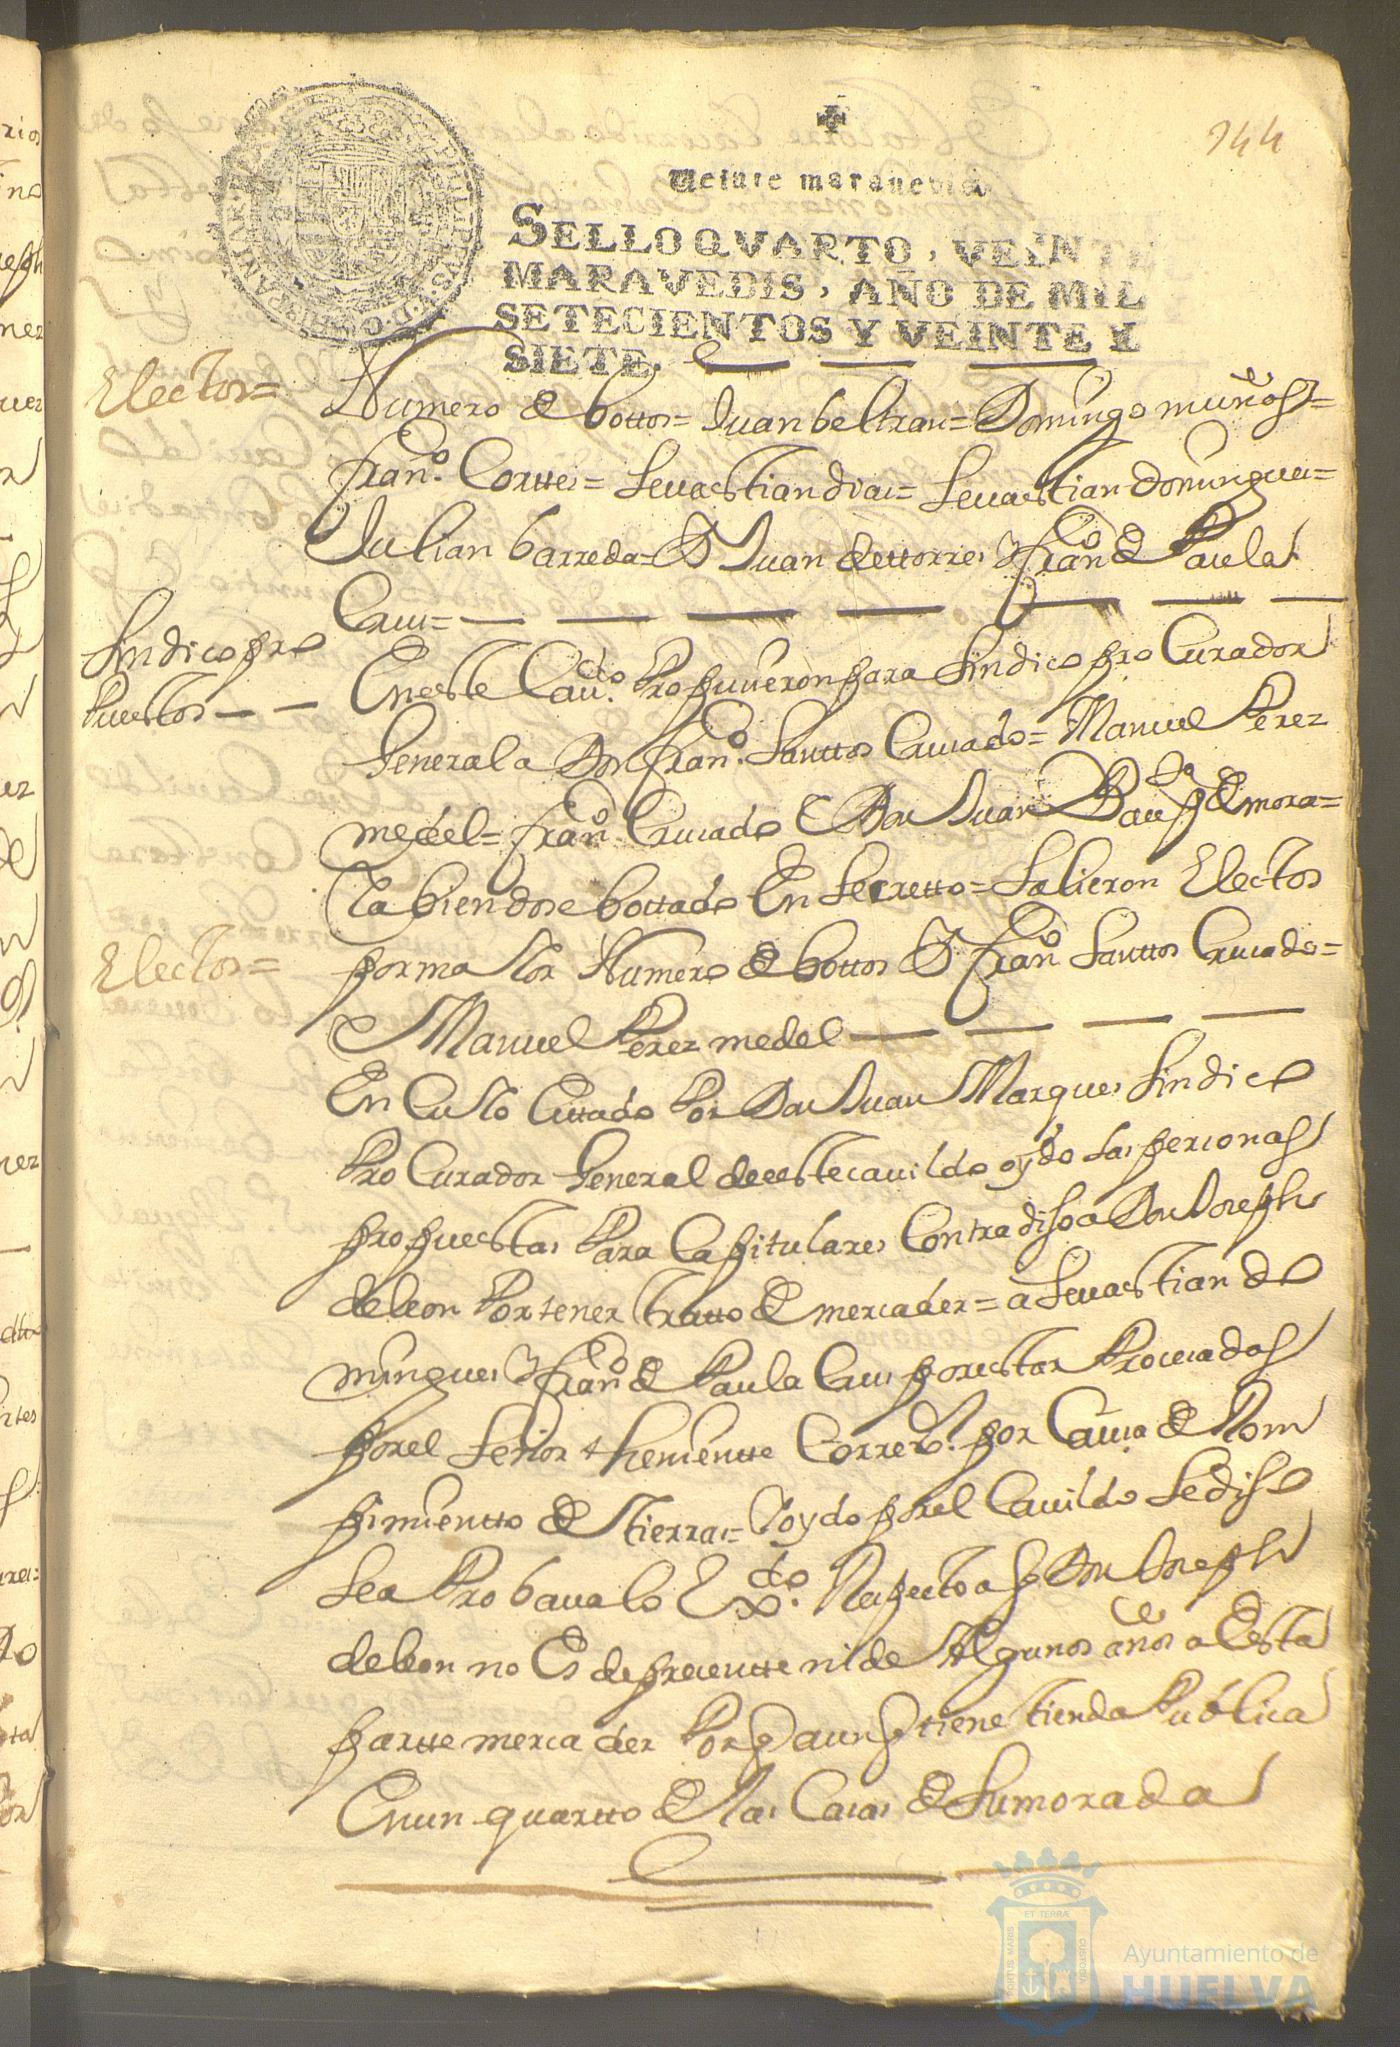 244
Veinte maravedis
SELLO QVARTO, VEINTE
MARAVEDIS, AÑO DE MIL
SETECIENTOS Y VEINTE Y
SIETE.
Electos=
Numero de bottos= Juan beltran= Domingo muños=
Fran.co Corttes= Sevastian dias= Sevastian domingues=
Julian barreda= D Juan dettorres y fran.co de Paula
Crus=
Sindico pro
Puestos
En este Cav.do Propusieron para Sindico pro Curador
General a Don fran.co Santtos Crusado= Manuel Perez
medel= fran.co Crusado E Don Juan Bau.ta de mora=
E abiendose bottado En Secretto= Salieron Electos
Electos=
por maior Numero de bottos D. fran.co Santtos Crusado=
E Manuel Perez medel
En Cuio Esttado Por Don Juan Marques Sindico
Pro Curador General de este cavildo oydo las personas
propuestas Para Capitulares Contradijo a Don Joseph
de leon Por tener tratto de mercader= a Sevastian do
mingues y fran.co de Paula Crus por estar Procesados
por el Señor theniente Corre.or por Causa de Rom
pimientto de tierras= Y oydo por el Cavildo Se dijo
Sea Probava lo Ex.do Respecto a q Don Joseph
de leon no Es de presentte ni de Algunos años a Esta
partte mercader Por q aun q tiene tienda Publica
En un quartto de las Casas de Su morada
ET TERRÆ
PORTUS MARIS
CUSTODIA
Ayuntamiento de
HUELVA